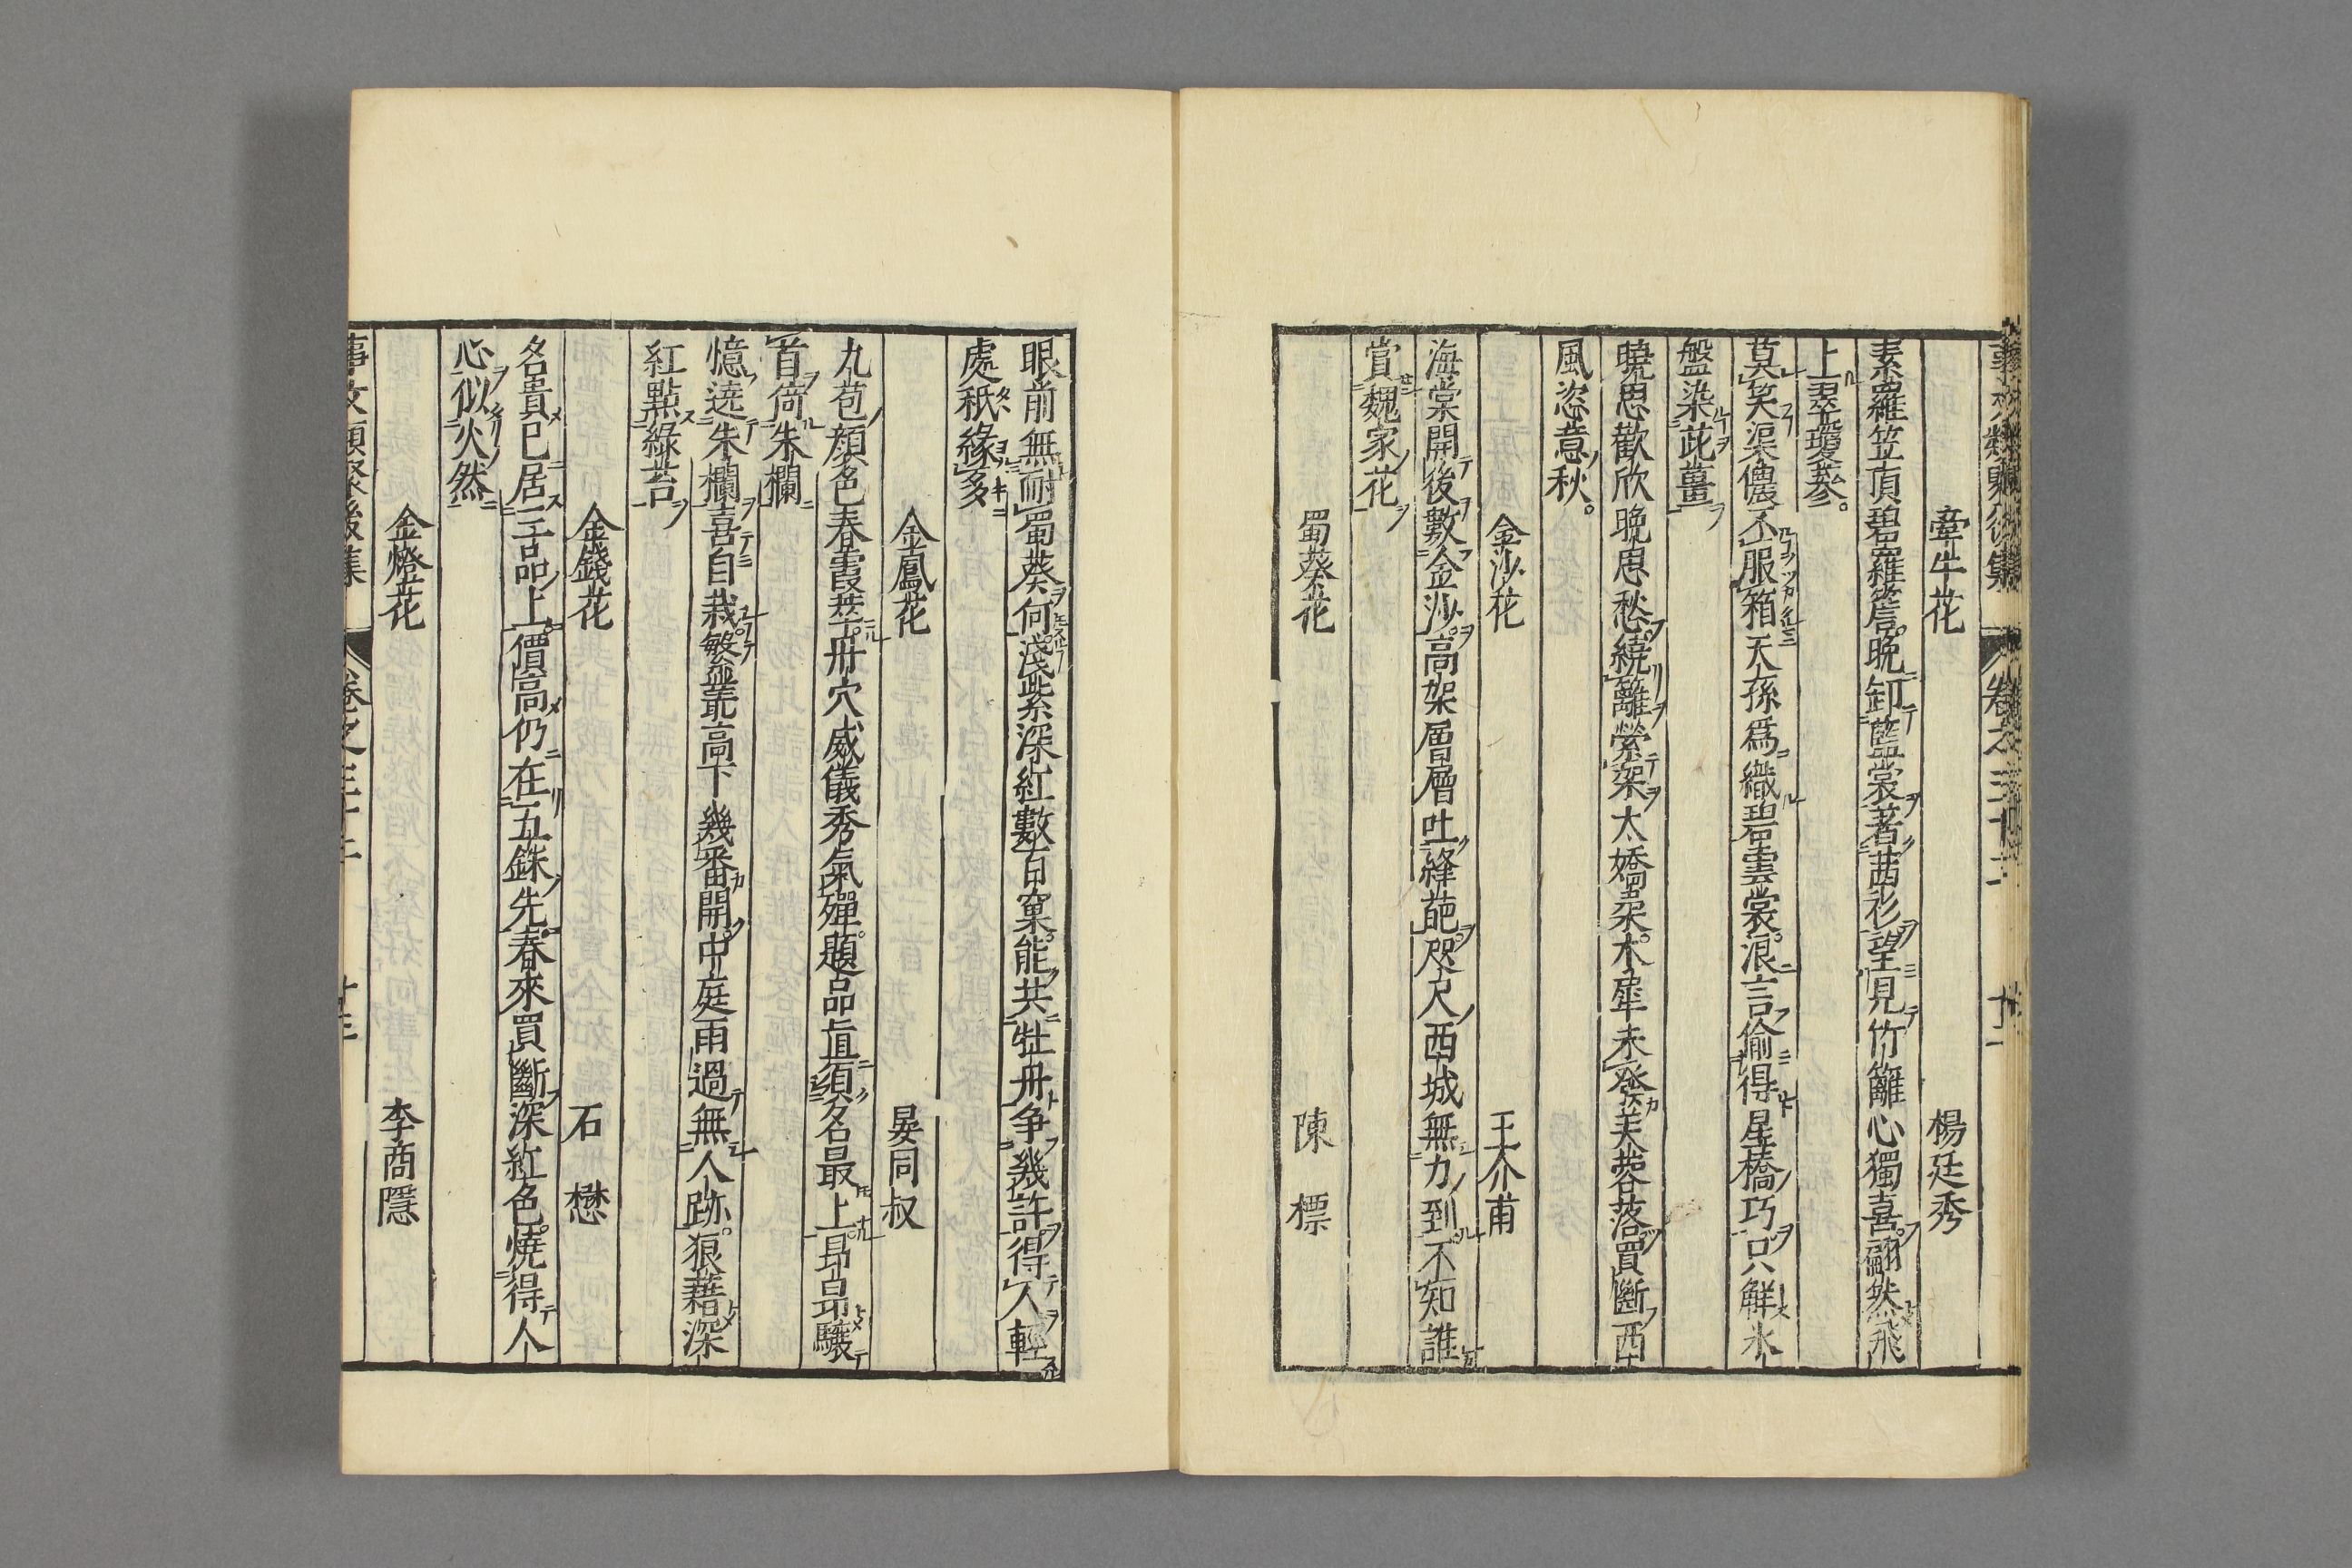 牽牛花 楊廷秀
素羅笠頂碧羅簷晚卸藍裳著茜衫望見竹籬心獨喜翩然飛
上翠瓊篸
莫笑渠儂不服箱天孫爲織碧雲裳浪言偷得星橋巧只解氷
盤染茈薑
曉思歡欣晚思愁繞籬縈架太嬌柔木犀未發芙蓉落買斷西
風恣意秋
金沙花 王介甫
海棠開後數金沙高架層層吐絳葩咫尺西城無力到不知誰
賞魏家花
蜀葵花 陳標
眼前無耐蜀葵何淺紫深紅數百窠能共牡丹争幾許得人輕
處秖緣多
金鳳花 晏同叔
九苞顔色春霞萃丹穴威儀秀氣殫題品直須名最上昂昂驤
首倚朱欄
憶遶朱欄喜自栽繁叢高下幾番開中庭雨過無人跡狼藉深
紅點綠苔
金錢花 石懋
名貴已居三品上價高仍在五銖先春來買斷深紅色燒得人
心似火然
金燈花 李商隱
事文類聚後集 卷之三十二 十三